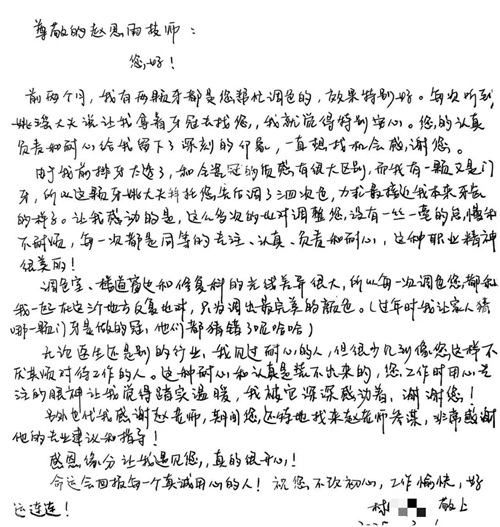 尊敬的赵恩雨技师：
您好！
前两个月，我有两颗牙都是您帮忙调色的，效果特别好。每次听到
姚深大夫说让我拿着牙冠去找您，我就觉得特别安心。您的认真
负责和耐心给我留下了深刻的印象，一直想找机会感谢您。
由于我前排牙太透了，和全瓷冠的质感有很大区别，而我有一颗又是门
牙，所以这颗牙姚大夫拜托您先后调了三四次色，力求最接近我本来牙齿
的样子。让我感动的是，这么多次的比对调整您没有一丝一毫的怠慢和
不耐烦，每一次都是同等的专注、认真、负责和耐心，这种职业精神
很美的！
调色室、楼道窗边和修复科的光线差异很大，所以每一次调色您都和
我一起在这三个地方反复比对，只为调出最完美的颜色。（过年时我让家人猜
哪一颗门牙是做的冠，他们都猜错了呢哈哈）
无论医生还是别的行业，我见过耐心的人，但很少见到像您这样不
厌其烦对待工作的人。这种耐心和认真是装不出来的，您工作时用心专
注的眼神让我觉得踏实温暖，我被它深深感动着，谢谢您！
另外也代我感谢赵老师，期间您还特地找来赵老师参谋，非常感谢
他的专业建议和指导！
感恩缘分让我遇见您，真的很开心！
命运会回报每一个真诚用心的人！祝您不改初心，工作愉快，好
运连连！
林 敬上